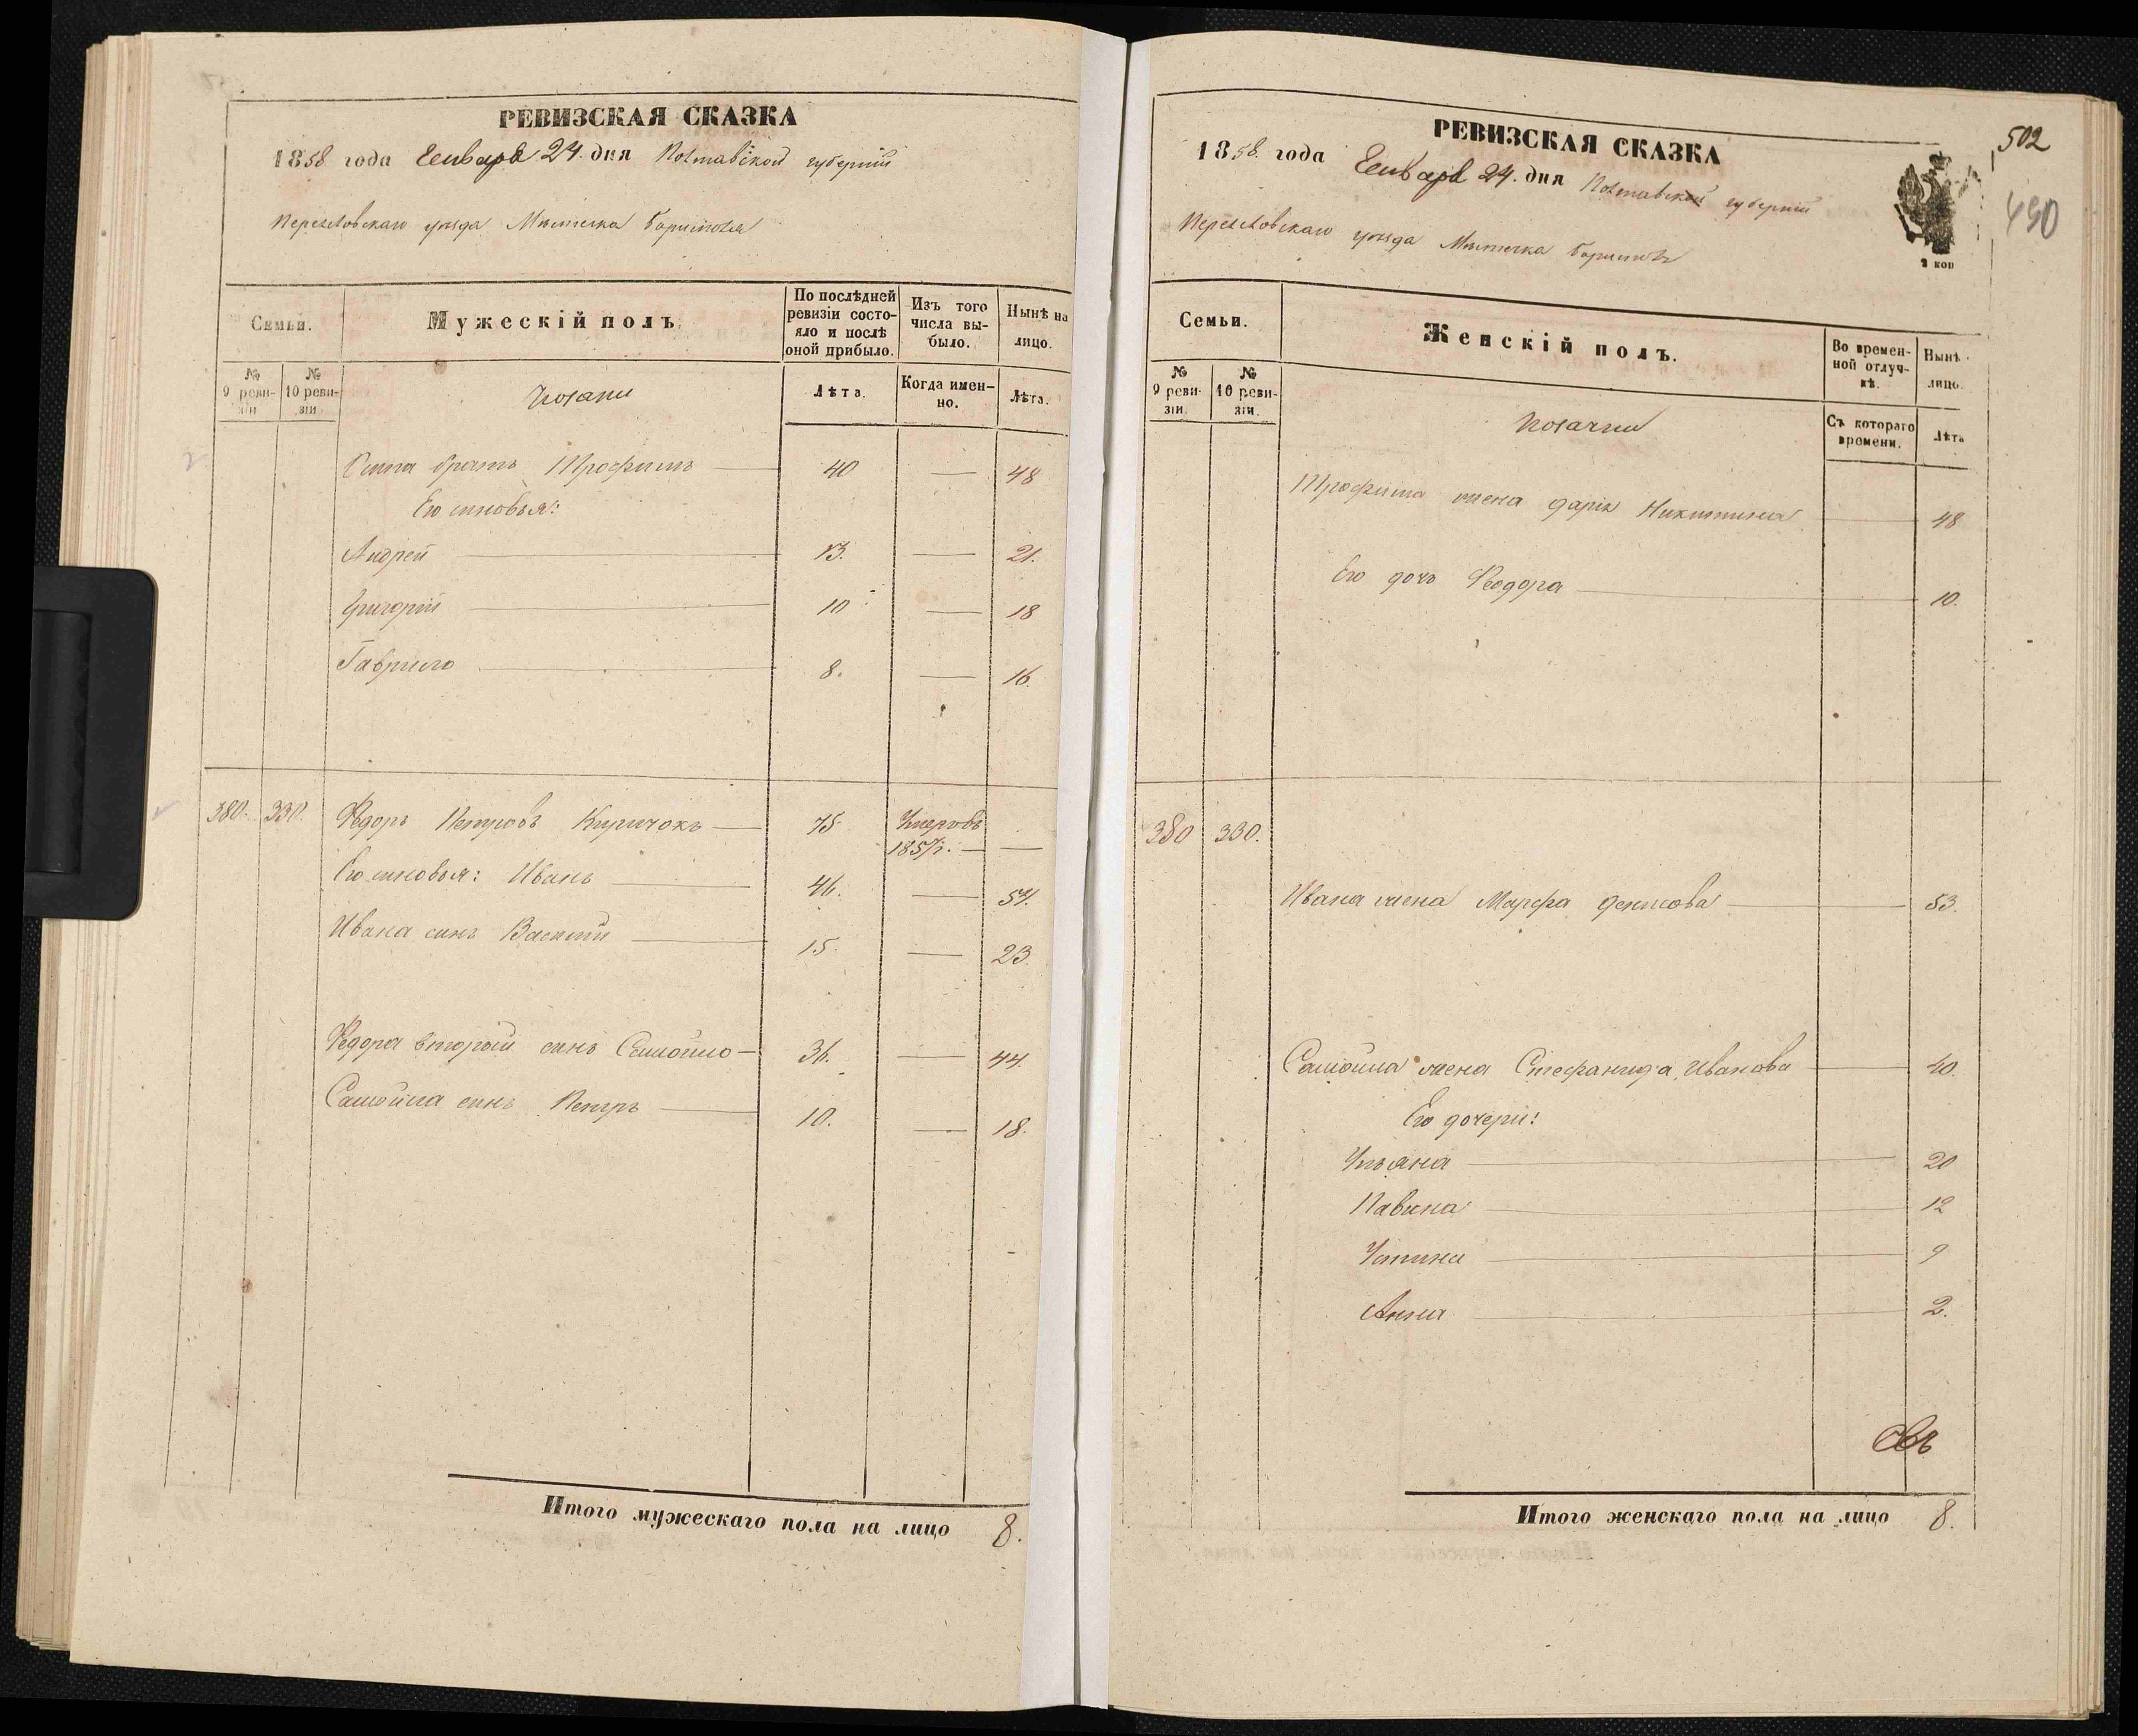 РЕВИЗСКАЯ СКАЗКА
1858 года Генваря 24. дня Полтавской губерніи
Переяславскаго уѣзда Мѣстечка Борисполя
Семьи.
Мужескій полъ.
По послѣдней ревизіи состояло и послѣ оной прибыло.
Изъ того числа выбыло.
Нынѣ на лицо.
№ 9 ревизіи
№ 10 ревизіи.
Козаки
Лѣта.
Когда именно.
Лѣта.
братъ Трофимъ — 40 — 48
Его сыновья:
Андрей — 13. — 21.
Григорій — 10 — 18
Гаврило — 8. — 16.
380. 330. Федоръ Петровъ Киричокъ — 75 Умеръ въ
1857г. — —
Его сыновья: Иванъ — 46. — 54.
Ивана сынъ Василій — 15. — 23.
Федора вторый сынъ Самойло — 36. — 44.
Самойла сынъ Петръ — 10. — 18.
Итого мужескаго пола на лицо 8.
502
490
РЕВИЗСКАЯ СКАЗКА
1858 года Генваря 24. дня Полтавской губерніи
Переяславскаго уѣзда Мѣстечка Борисполя
2 коп
Семьи.
Женскій полъ.
Во временной отлучкѣ.
Нынѣ лицо.
№ 9 ревизіи.
№ 10 ревизіи.
Козачки
Съ котораго времени.
Лѣта
Трофима жена Дарія Никитина — 48
Его дочь Феодора — 10.
380 330.
Ивана жена Марфа Денисова — 53.
Самойла жена Стефанида Иванова — 40.
Его дочери:
Ульяна — 20
Павлина — 12
Устина — 9
Анна — 2.
Итого женскаго пола на лицо 8.